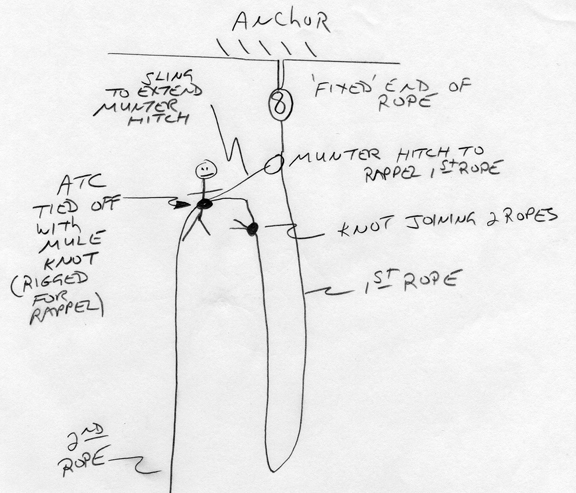 ANCHOR
SLING
TO EXTEND
MUNTER
HITCH
'FIXED' END OF
ROPE
8
MUNTER HITCH TO
RAPPEL 1ST ROPE
ATC
TIED OFF
WITH
MULE
KNOT
(RIGGED
FOR
RAPPEL)
KNOT JOINING 2 ROPES
1ST ROPE
2ND
ROPE